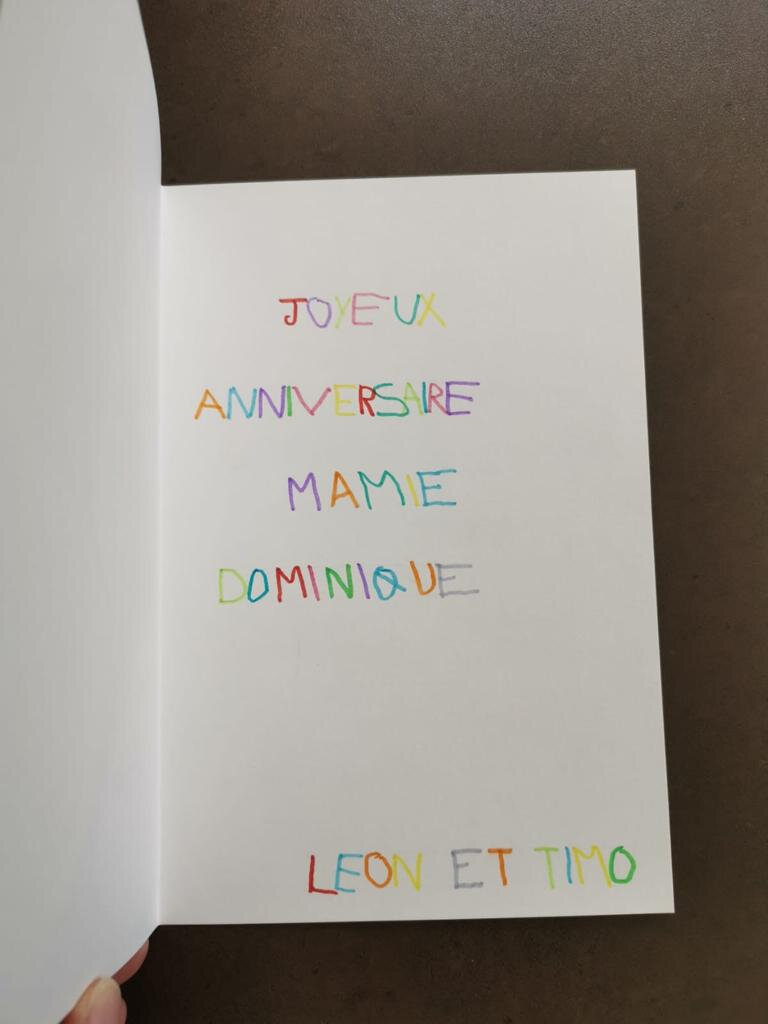 JOYEUX
ANNIVERSAIRE
MAMIE
DOMINIQUE
LEON ET TIMO